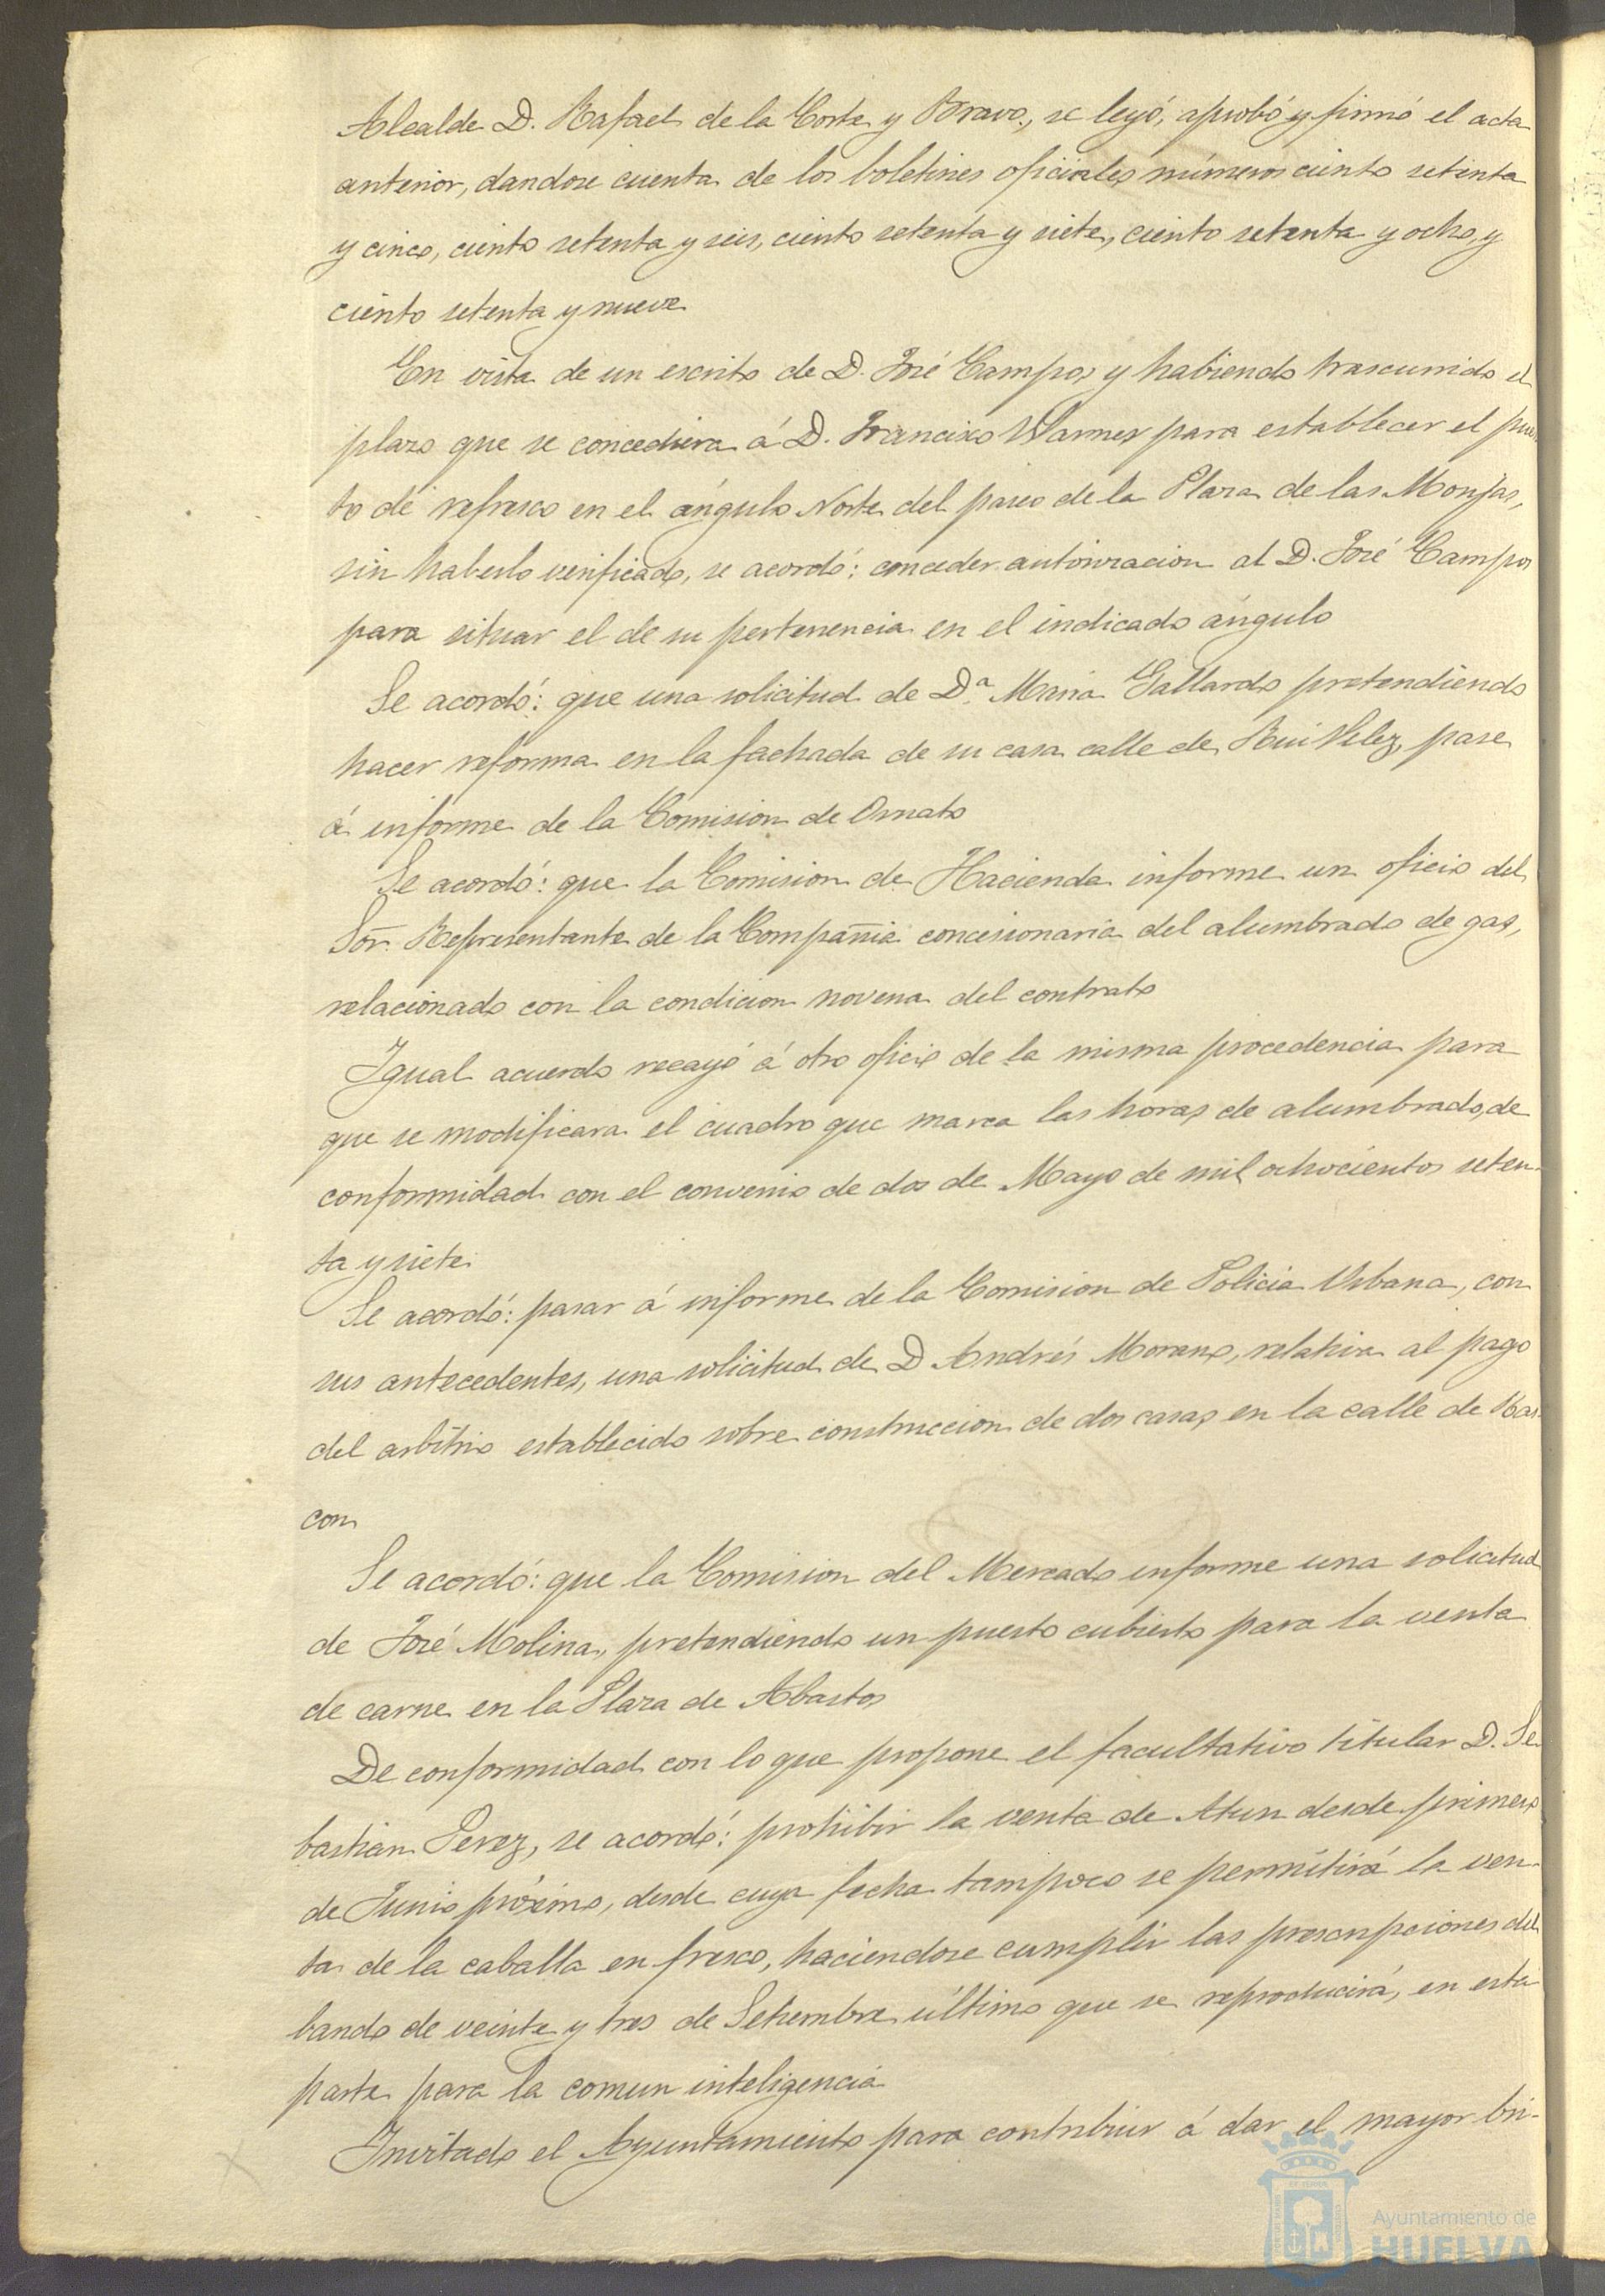 Alcalde D. Rafael de la Corte y Bravo, se leyó, aprobó y firmó el acta
anterior, dandose cuenta de los boletines oficiales números ciento setenta
y cinco, ciento setenta y seis, ciento setenta y siete, ciento setenta y ocho, y
ciento setenta y nueve
En vista de un escrito de D. José Campos y habiendo trascurrido el
plazo que se concediera á D. Francisco Warner para establecer el pues
to de refresco en el ángulo Norte del paseo de la Plaza de las Monjas,
sin haberlo verificado, se acordó: conceder autorizacion al D. José Campos
para situar el de su pertenencia en el indicado ángulo
Se acordó: que una solicitud de Dª. Maria Gallardo pretendiendo
hacer reforma en la fachada de su casa calle de Rui Velez, pase
á informe de la Comision de Ornato
Se acordó: que la Comision de Hacienda informe un oficio del
Sor. Representante de la Compañia concesionaria del alumbrado de gas,
relacionado con la condicion novena del contrato
Igual acuerdo recayó á otro oficio de la misma procedencia para
que se modificara el cuadro que marca las horas de alumbrado, de
conformidad con el convenio de dos de Mayo de mil ochocientos seten-
ta y siete
Se acordó: pasar á informe de la Comision de Policia Urbana, con
sus antecedentes, una solicitud de D Andrés Moreno, relativa al pago
del arbitrio establecido sobre construccion de dos casas en la calle de Ras-
con
Se acordó: que la Comision del Mercado informe una solicitud
de José Molina, pretendiendo un puesto cubierto para la venta
de carne en la Plaza de Abastos
De conformidad con lo que propone el facultativo titular D. Se-
bastian Perez, se acordó: prohibir la venta de Atun desde primero
de Junio próximo, desde cuya fecha tampoco se permitirá la ven-
ta de la caballa en fresco, haciendose cumplir las prescripciones del
bando de veinte y tres de Setiembre último que se reproducirá, en esta
parte para la comun inteligencia
Invitado el Ayuntamiento para contribuir á dar el mayor bri-
Ayuntamiento de
HUELVA